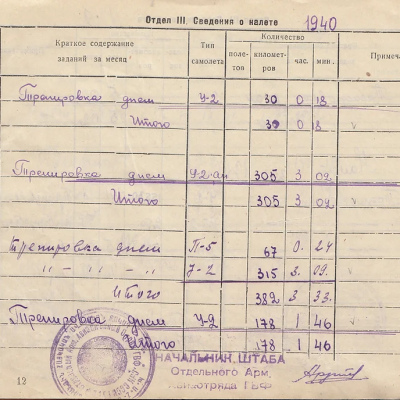 Отдел III. Сведения о налете 1940
Краткое содержание заданий за месяц
Тип самолета
Количество
полетов
километров
час.
мин.
Примеча
Тренировка днем У-2 30 0 18
Итого 30 0 18
Тренировка днем У-2 305 3 09
Итого 305 3 09
Тренировка днем П-5 67 0 24
-"- -"- У-2 315 3 09
Итого 382 3 33
Тренировка днем У-2 178 1 46
Итого 178 1 46
НАЧАЛЬНИК ШТАБА
Отдельного Арм.
Авиаотряда
12